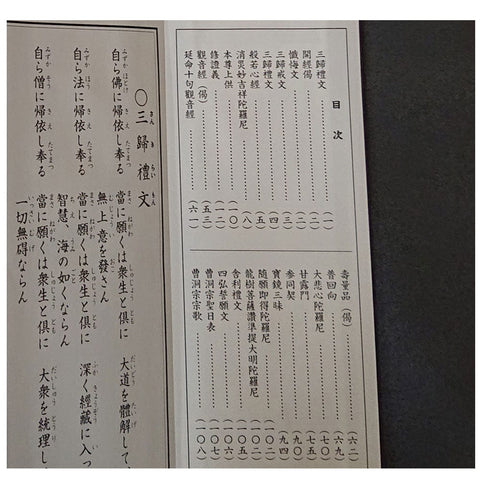 目次
三歸禮文……(一)
開經偈……(一)
懺悔文……(二)
三歸戒文……(三)
三歸禮文……(四)
般若心經……(五)
消災妙吉祥陀羅尼……(八)
本尊上供……(一〇)
修證義……(一一)
觀音經(偈)……(五三)
延命十句觀音經……(六一)
壽量品(偈)……(六二)
普回向……(六九)
大悲心陀羅尼……(七〇)
甘露門……(七五)
參同契……
寶鏡三昧……(九四)
隨願即得陀羅尼……
龍樹菩薩讚準提大明陀羅尼……
舍利禮文……(一〇五)
四弘誓願文……
曹洞宗聖日表……(一〇七)
曹洞宗宗歌……(一〇八)
〇三歸禮文
自ら佛に歸依し奉る 當に願くは衆生と倶に 大道を體解して、
無上意を發さん
自ら法に歸依し奉る 當に願くは衆生と倶に 深く經藏に入っ
智慧、海の如くならん
自ら僧に歸依し奉る 當に願くは衆生と倶に 大衆を統理し
一切無礙ならん